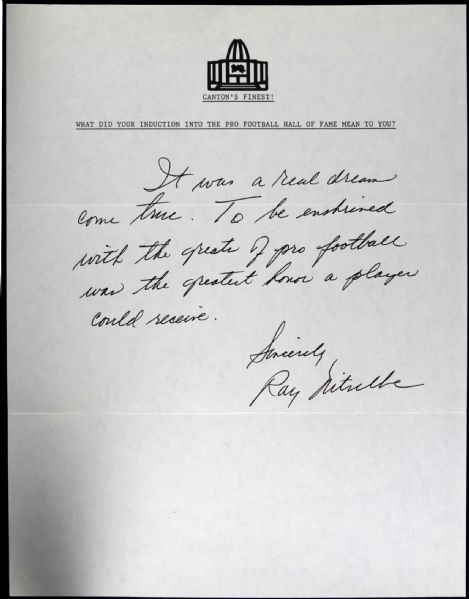 CANTON'S FINEST!
WHAT DID YOUR INDUCTION INTO THE PRO FOOTBALL HALL OF FAME MEAN TO YOU?
It was a real dream
come true. To be enshrined
with the greats of pro football
was the greatest honor a player
could receive.
Sincerely,
Ray Nitschke